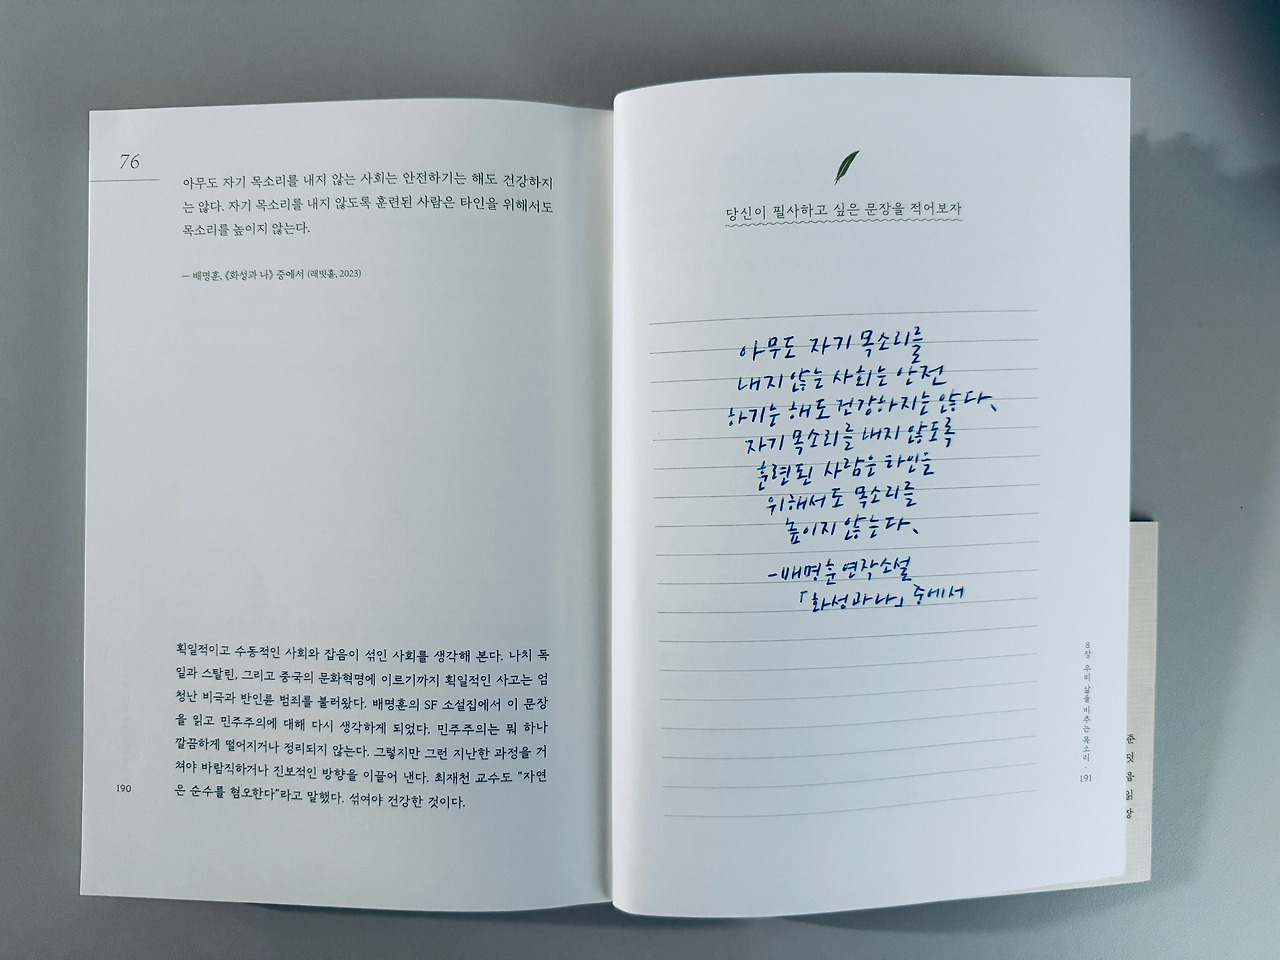 76
아무도 자기 목소리를 내지 않는 사회는 안전하기는 해도 건강하지
는 않다. 자기 목소리를 내지 않도록 훈련된 사람은 타인을 위해서도
목소리를 높이지 않는다.
— 배명훈, 《화성과 나》 중에서 (래빗홀, 2023)
획일적이고 수동적인 사회와 잡음이 섞인 사회를 생각해 본다. 나치 독
일과 스탈린, 그리고 중국의 문화혁명에 이르기까지 획일적인 사고는 엄
청난 비극과 반인륜 범죄를 불러왔다. 배명훈의 SF 소설집에서 이 문장
을 읽고 민주주의에 대해 다시 생각하게 되었다. 민주주의는 뭐 하나
깔끔하게 떨어지거나 정리되지 않는다. 그렇지만 그런 지난한 과정을 거
쳐야 바람직하거나 진보적인 방향을 이끌어 낸다. 최재천 교수도 “자연
은 순수를 혐오한다”라고 말했다. 섞여야 건강한 것이다.
190
당신이 필사하고 싶은 문장을 적어보자
아무도 자기 목소리를
내지 않는 사회는 안전
하기는 해도 건강하지는 않다.
자기 목소리를 내지 않도록
훈련된 사람은 타인을
위해서도 목소리를
높이지 않는다.
-배명훈 연작소설
「화성과 나」 중에서
8장 우리 삶을 비추는 목소리 · 191
준
덧
음
읽
장